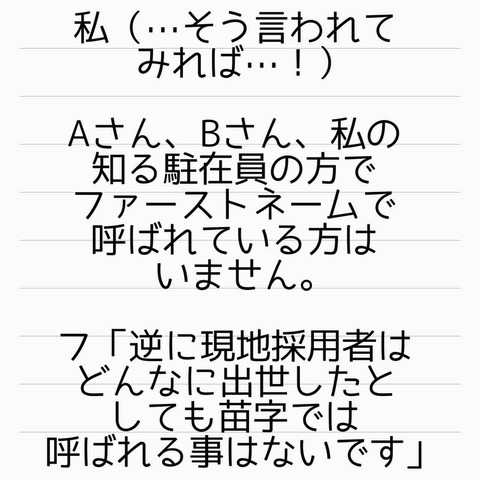 私（…そう言われて
みれば…！）
Aさん、Bさん、私の
知る駐在員の方で
ファーストネームで
呼ばれている方は
いません。
フ「逆に現地採用者は
どんなに出世したと
しても苗字では
呼ばれる事はないです」